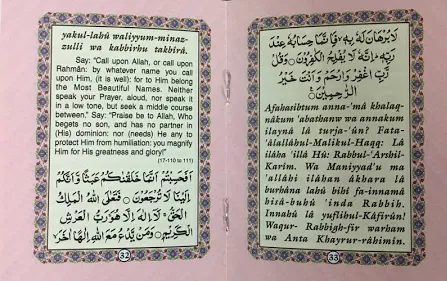 yakul-lahû waliyyum-minaz-
zulli wa kabbirhu takbîrâ.
Say: “Call upon Allah, or call upon
Rahmân: by whatever name you call
upon Him, (it is well): for to Him belong
the Most Beautiful Names. Neither
speak your Prayer, aloud, nor speak it
in a low tone, but seek a middle course
between.” Say: “Praise be to Allah, Who
begets no son, and has no partner in
(His) dominion: nor (needs) He any to
protect Him from humiliation: you magnify
Him for His greatness and glory!”
(17-110 to 111)
اَفَحَسِبْتُمْ اَنَّمَا خَلَقْنٰكُمْ عَبَثًا وَّاَنَّكُمْ
اِلَيْنَا لَا تُرْجَعُوْنَ۝ فَتَعٰلَى اللّٰهُ الْمَلِكُ
الْحَقُّ ۚ لَآ اِلٰهَ اِلَّا هُوَ ۚ رَبُّ الْعَرْشِ
الْكَرِيْمِ۝ وَمَنْ يَّدْعُ مَعَ اللّٰهِ اِلٰهًا اٰخَرَ ۙ
32
لَا بُرْهَانَ لَهٗ بِهٖ ۙ فَاِنَّمَا حِسَابُهٗ عِنْدَ
رَبِّهٖ ؕ اِنَّهٗ لَا يُفْلِحُ الْكٰفِرُوْنَ۝ وَقُلْ
رَّبِّ اغْفِرْ وَارْحَمْ وَاَنْتَ خَيْرُ
الرّٰحِمِيْنَ۝
Afahasibtum anna-mâ khalaq-
nâkum ‘abathanw wa annakum
ilaynâ lâ turja-‘ûn? Fata-
‘âlallâhul-Malikul-Haqq: Lâ
ilâha ‘illâ Hû: Rabbul-‘Arshil-
Karîm. Wa Maniyyad‘u ma
‘allâhi ilâhan âkhara lâ
burhâna lahû bihî fa-innamâ
hisâ-buhû ‘inda Rabbih.
Innahû lâ yuflihul-Kâfirûn!
Waqur- Rabbigh-fir warham
wa Anta Khayrur-râhimîn.
33